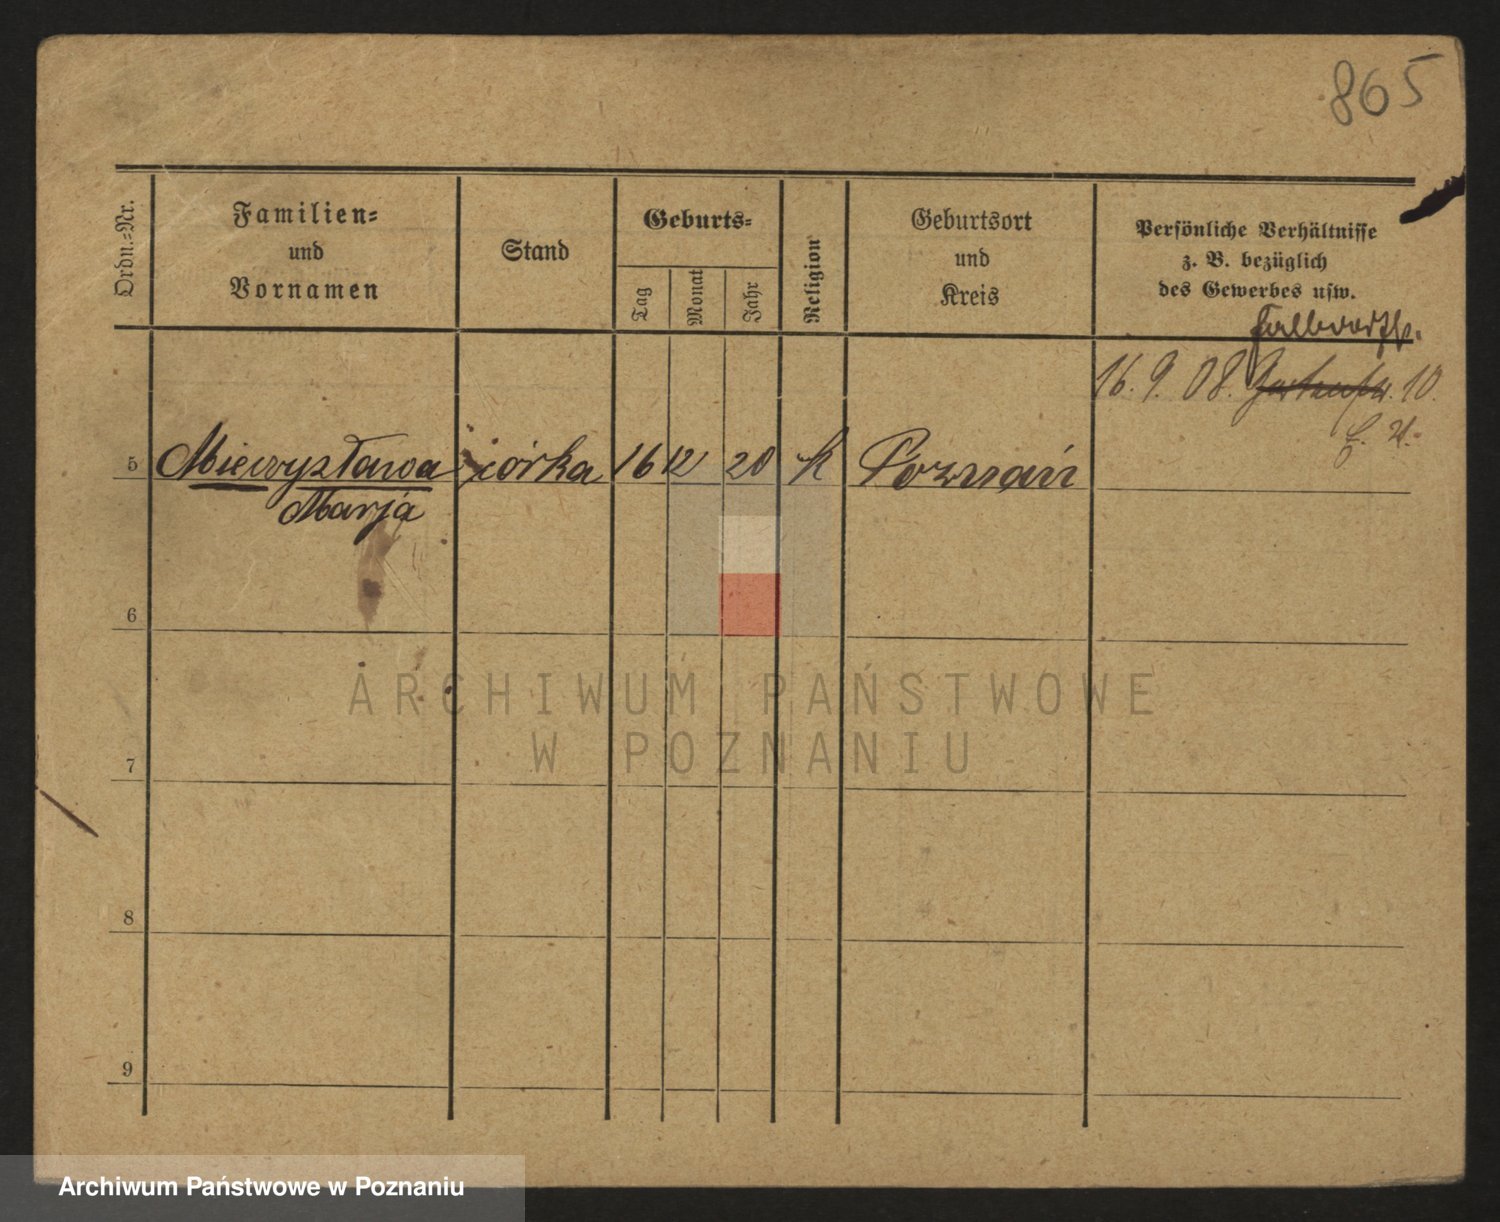 865
Ordn.-Nr.
Familien-
und
Vornamen
Stand
Geburts-
Tag
Monat
Jahr
Religion
Geburtsort
und
Kreis
Persönliche Verhältnisse
z. B. bezüglich
des Gewerbes usw.
16. 9. 08. 10.
5 Mieczysława córka 16 12 20 k Poznań
Marja
6
7
8
9
ARCHIWUM PAŃSTWOWE
W POZNANIU
Archiwum Państwowe w Poznaniu